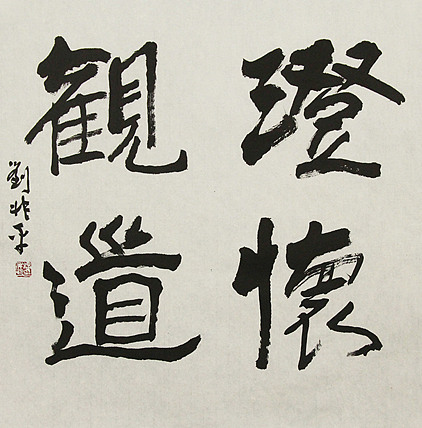 澄懷
觀道
劉非平